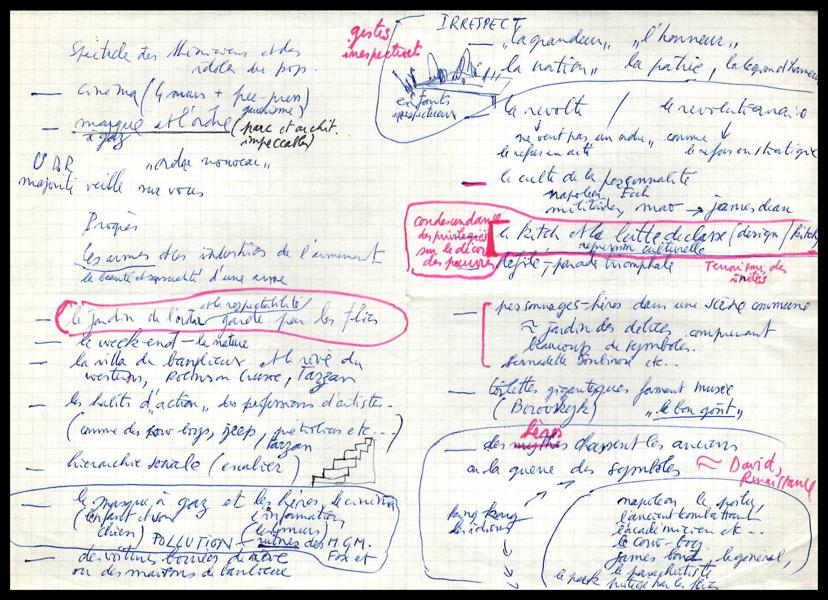 Spectacle des Miniciens et des
idoles du pop.
— cinéma (4 murs + free-press)
gaudrisme)
— masque et l'ordre (parc et archit.
à gaz
impeccables)
UDR "ordre nouveau"
majorité veille sur vous
Progrès
les armes et les industries de l'armement
la beauté et sensualité d'une arme
et la respectabilité
— le jardin de l'ordre gardé par les flics
— le week-end – la nature
— la villa du banlieux et le rêve du
western, Robinson Crusoe, Tarzan
— les habits "d'action", les professions d'artistes.
(comme des cow-boys, jeep, etc...)
Tarzan
— hierarchie sociale (escalier)
— le masque à gaz et les héros, le cinéma
(enfant et son l'information
chien) (les murs)
POLLUTION – ruines des M.G.M.
Fox et
— des voitures
ou des maisons de banlieue
gestes
irrespect
IRRESPECT
— "la grandeur" "l'honneur"
la nation", la patrie,
enfants
irrespectueux
— la revolte / le revolutionnaire
ne veut pas un ordre, comme
le refus en acte le refus en stratégie
— le culte de la personnalité
napoleon, Foch
militaires, mao → james dean
condescendance
des privilegiés
sur le décor
des pauvres
le kitch et la lutte de classe (design / kitch)
repression culturelle
défilé, – parade triomphale
Terrorisme des
— personnages-héros dans une scène commune
≈ jardin des delices comprenant
beaucoup de symboles.
Bernadette Soubirou etc...
— toilettes gigantesques formant musée
(Borovskyk) "le bon goût"
héros
— des mythes chassent les anciens
en la guerre des symboles ≈ David,
Renaissance
King Kong
napoleon le petit,
l'ancien combattant
l'académicien etc...
le cow-boy
james bond, le general,
le parachutiste
protégé par les flics